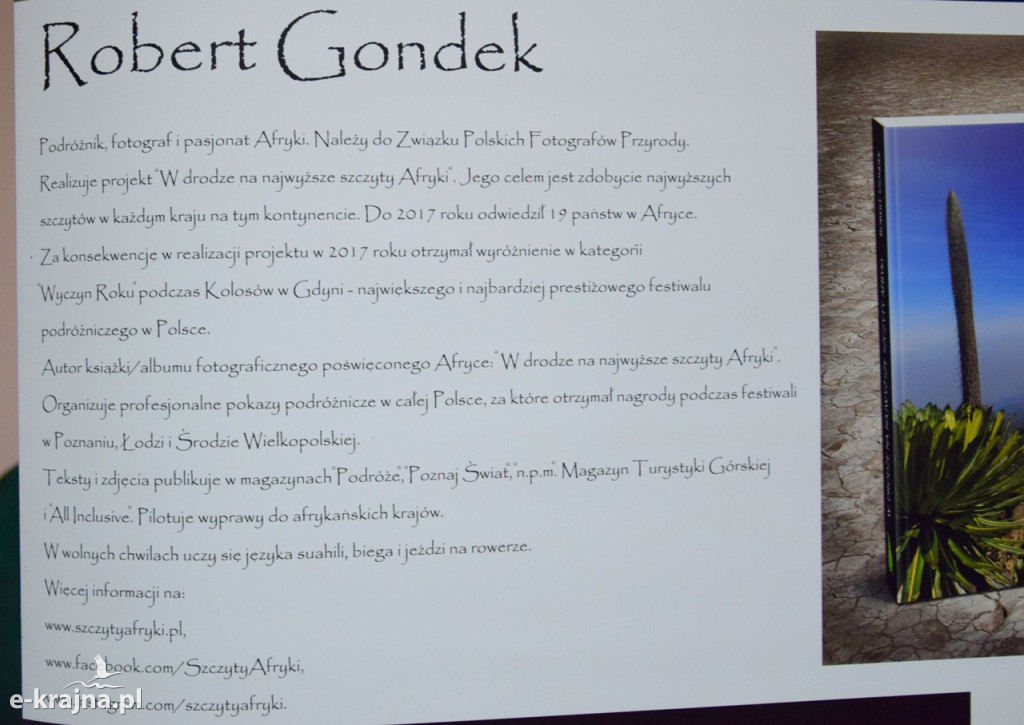 Robert Gondek
Podróżnik, fotograf i pasjonat Afryki. Należy do Związku Polskich Fotografów Przyrody.
Realizuje projekt "W drodze na najwyższe szczyty Afryki". Jego celem jest zdobycie najwyższych
szczytów w każdym kraju na tym kontynencie. Do 2017 roku odwiedził 19 państw w Afryce.
Za konsekwencję w realizacji projektu w 2017 roku otrzymał wyróżnienie w kategorii
"Wyczyn Roku" podczas Kolosów w Gdyni - największego i najbardziej prestiżowego festiwalu
podróżniczego w Polsce.
Autor książki/albumu fotograficznego poświęconego Afryce: "W drodze na najwyższe szczyty Afryki".
Organizuje profesjonalne pokazy podróżnicze w całej Polsce, za które otrzymał nagrody podczas festiwali
w Poznaniu, Łodzi i Środzie Wielkopolskiej.
Teksty i zdjęcia publikuje w magazynach "Podróże", "Poznaj Świat", "n.p.m". Magazyn Turystyki Górskiej
i "All Inclusive". Pilotuje wyprawy do afrykańskich krajów.
W wolnych chwilach uczy się języka suahili, biega i jeździ na rowerze.
Więcej informacji na:
www.szczytyafryki.pl,
www.facebook.com/SzczytyAfryki,
.com/szczytyafryki.
e-krajna.pl